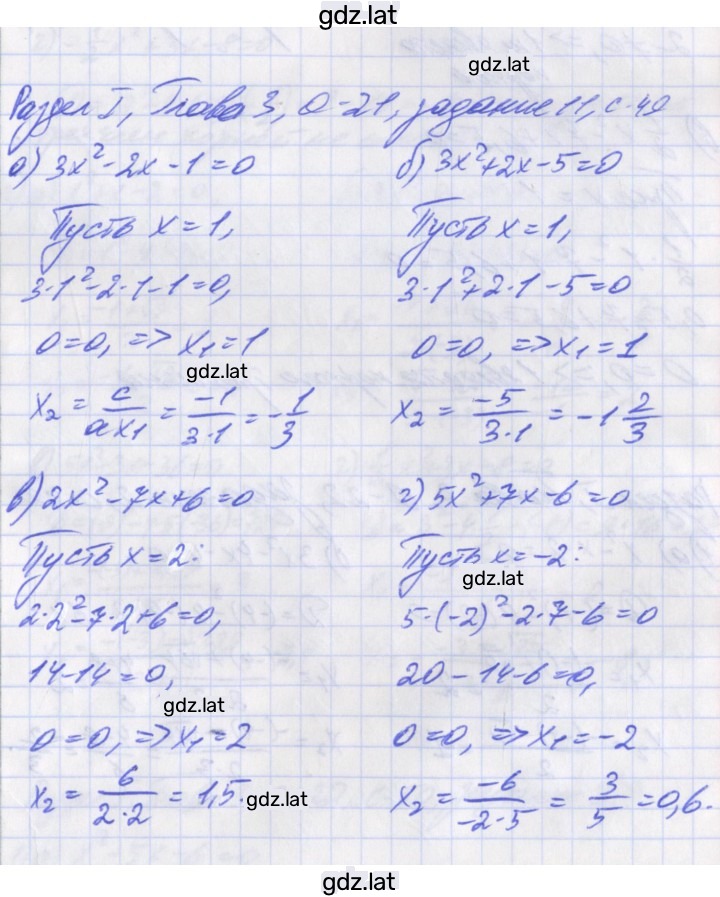 gdz.lat
gdz.lat
Раздел I, Глава 3, О-21, задание 11, с-49
а) 3x² - 2x - 1 = 0
Пусть x = 1,
3·1² - 2·1 - 1 = 0,
0 = 0, => x₁ = 1
gdz.lat
x₂ = c/(ax₁) = -1/(3·1) = -1/3
б) 3x² + 2x - 5 = 0
Пусть x = 1,
3·1² + 2·1 - 5 = 0
0 = 0, => x₁ = 1
x₂ = -5/(3·1) = -1 2/3
в) 2x² - 7x + 6 = 0
Пусть x = 2:
2·2² - 7·2 + 6 = 0,
14 - 14 = 0,
gdz.lat
0 = 0, => x₁ = 2
x₂ = 6/(2·2) = 1,5.
gdz.lat
г) 5x² + 7x - 6 = 0
Пусть x = -2:
gdz.lat
5·(-2)² - 2·7 - 6 = 0
20 - 14 - 6 = 0,
0 = 0, => x₁ = -2
x₂ = -6/(-2·5) = 3/5 = 0,6.
gdz.lat